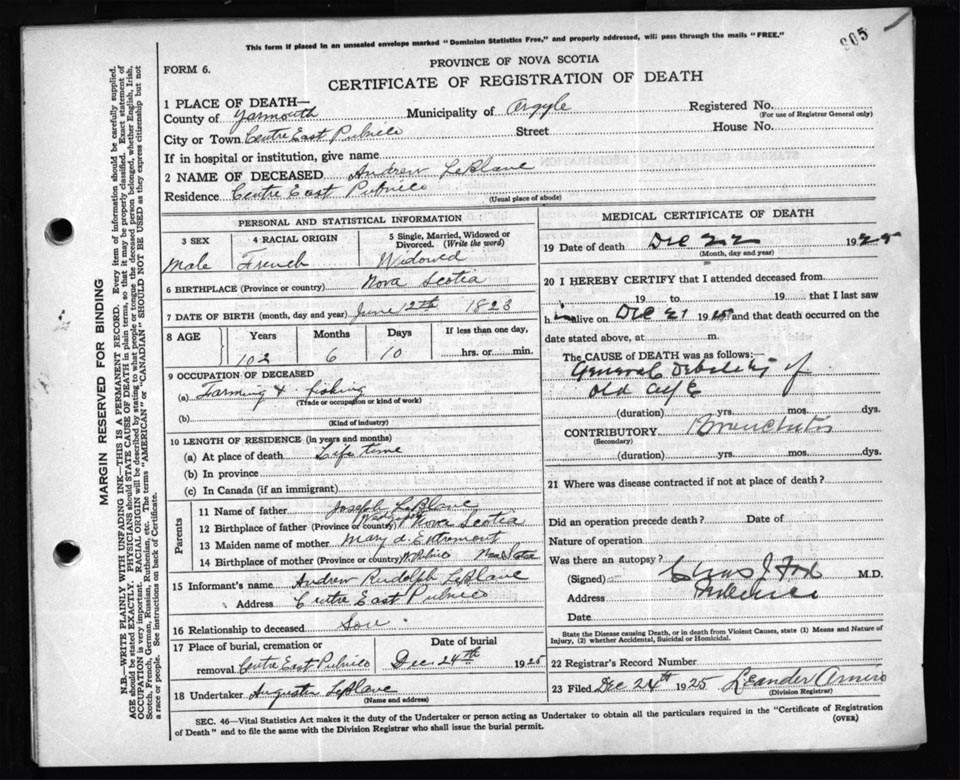 905
This form if placed in an unsealed envelope marked "Dominion Statistics Free," and properly addressed, will pass through the mails "FREE."
FORM 6.
PROVINCE OF NOVA SCOTIA
CERTIFICATE OF REGISTRATION OF DEATH
1 PLACE OF DEATH—
County of Yarmouth Municipality of Argyle Registered No.
(For use of Registrar General only)
City or Town Centre East Pubnico Street House No.
If in hospital or institution, give name
2 NAME OF DECEASED Andrew LeBlanc
Residence Centre East Pubnico
(Usual place of abode)
PERSONAL AND STATISTICAL INFORMATION
3 SEX 4 RACIAL ORIGIN 5 Single, Married, Widowed or Divorced. (Write the word)
Male French Widowed
6 BIRTHPLACE (Province or country) Nova Scotia
7 DATE OF BIRTH (month, day and year) June 12th 1823
8 AGE Years Months Days If less than one day,
102 6 10 hrs. or min.
9 OCCUPATION OF DECEASED
(a) Farming & fishing
(Trade or occupation or kind of work)
(b)
(Kind of industry)
10 LENGTH OF RESIDENCE (in years and months)
(a) At place of death Life time
(b) In province
(c) In Canada (if an immigrant)
Parents
11 Name of father Joseph LeBlanc
12 Birthplace of father (Province or country) Nova Scotia
13 Maiden name of mother Mary d'Entremont
14 Birthplace of mother (Province or country) W Pubnico Nova Scotia
15 Informant's name Andrew Rudolph LeBlanc
Address Centre East Pubnico
16 Relationship to deceased Son
17 Place of burial, cremation or removal Date of burial
Centre East Pubnico Dec. 24th 1925
18 Undertaker Augustin LeBlanc
(Name and address)
MEDICAL CERTIFICATE OF DEATH
19 Date of death Dec 22 1925
(Month, day and year)
20 I HEREBY CERTIFY that I attended deceased from
19 to 19 that I last saw
h im alive on Dec 21 1925 and that death occurred on the
date stated above, at m.
The CAUSE OF DEATH was as follows:
General Debility of
old age
(duration) yrs. mos. dys.
CONTRIBUTORY Bronchitis
(Secondary)
(duration) yrs. mos. dys.
21 Where was disease contracted if not at place of death?
Did an operation precede death? Date of
Nature of operation
Was there an autopsy?
(Signed) Chas J Fox M.D.
Address Pubnico
Date
State the Disease causing Death, or in death from Violent Causes, state (1) Means and Nature of
Injury, (2) whether Accidental, Suicidal or Homicidal.
22 Registrar's Record Number
23 Filed Dec 24th 1925 Leander Amiro
(Division Registrar)
SEC. 46—Vital Statistics Act makes it the duty of the Undertaker or person acting as Undertaker to obtain all the particulars required in the "Certificate of Registration
of Death" and to file the same with the Division Registrar who shall issue the burial permit. (OVER)
MARGIN RESERVED FOR BINDING
N.B.—WRITE PLAINLY WITH UNFADING INK—THIS IS A PERMANENT RECORD. Every item of information should be carefully supplied.
AGE should be stated EXACTLY. PHYSICIANS should STATE CAUSE OF DEATH in plain terms, so that it may be properly classified. Exact statement of
OCCUPATION is very important. RACIAL ORIGIN will be described by stating to what people or tongue the deceased person belonged, whether English, Irish,
Scotch, French, German, Russian, Ruthenian, etc. The terms "AMERICAN" or "CANADIAN" SHOULD NOT BE USED as they express citizenship but not
a race or people. See instructions on back of Certificate.